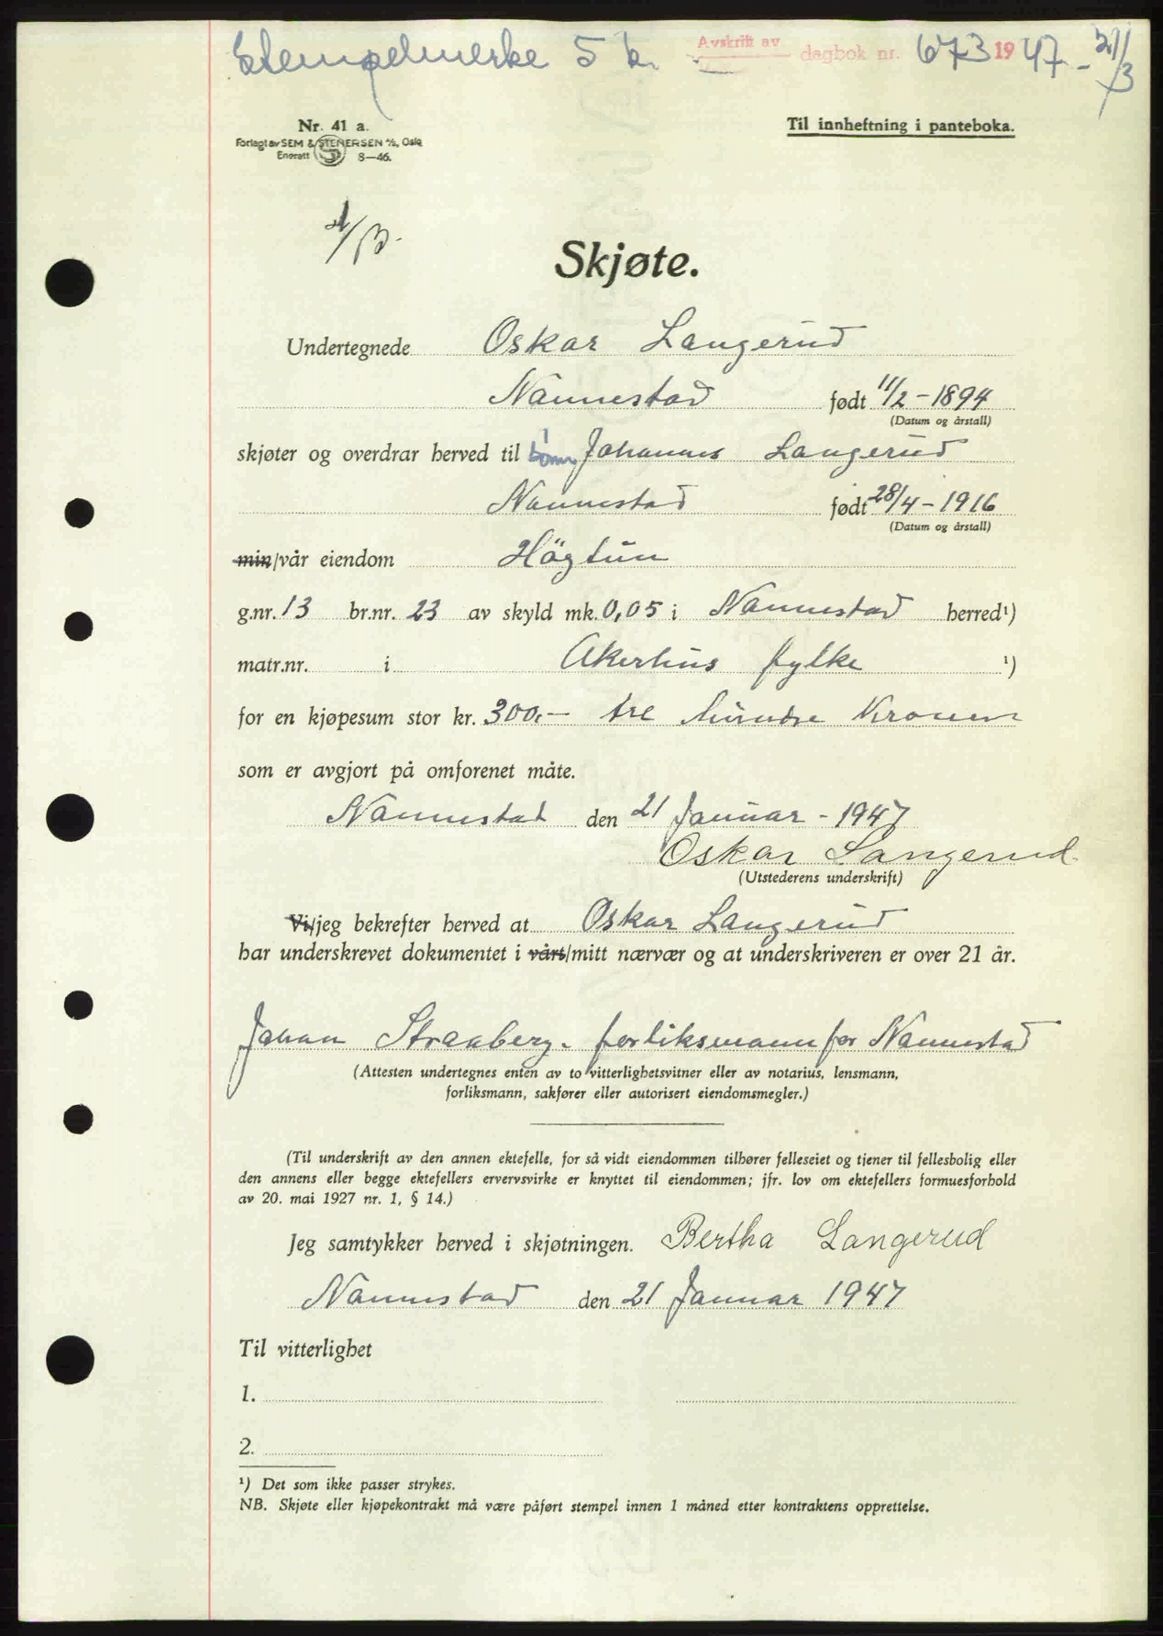 Stempelmerke 5 kr. Avskrift av dagbok nr. 673 1947 - 21/3
Nr. 41 a.
Til innheftning i panteboka.
Forlagt av SEM & STENERSEN A/S, Oslo
Enerett S 8—46.
Skjøte.
Undertegnede Oskar Langerud
Nannestad født 11/2 - 1894
(Datum og årstall)
skjøter og overdrar herved til Johannes Langerud
Nannestad født 28/4 - 1916
(Datum og årstall)
min/vår eiendom Högtun
g.nr. 13 br.nr. 23 av skyld mk. 0,05 i Nannestad herred¹)
matr.nr. i Akerhus fylke ¹)
for en kjøpesum stor kr. 300,- tre hundre Kroner
som er avgjort på omforenet måte.
Nannestad den 21 Januar - 1947
Oskar Langerud.
(Utstederens underskrift)
Vi/jeg bekrefter herved at Oskar Langerud
har underskrevet dokumentet i vårt/mitt nærvær og at underskriveren er over 21 år.
Johan Straaberg. forliksmann for Nannestad
(Attesten undertegnes enten av to vitterlighetsvitner eller av notarius, lensmann,
forliksmann, sakfører eller autorisert eiendomsmegler.)
(Til underskrift av den annen ektefelle, for så vidt eiendommen tilhører felleseiet og tjener til fellesbolig eller
den annens eller begge ektefellers ervervsvirke er knyttet til eiendommen; jfr. lov om ektefellers formuesforhold
av 20. mai 1927 nr. 1, § 14.)
Jeg samtykker herved i skjøtningen. Bertha Langerud
Nannestad den 21 Januar 1947
Til vitterlighet
1.
2.
¹) Det som ikke passer strykes.
NB. Skjøte eller kjøpekontrakt må være påført stempel innen 1 måned etter kontraktens opprettelse.